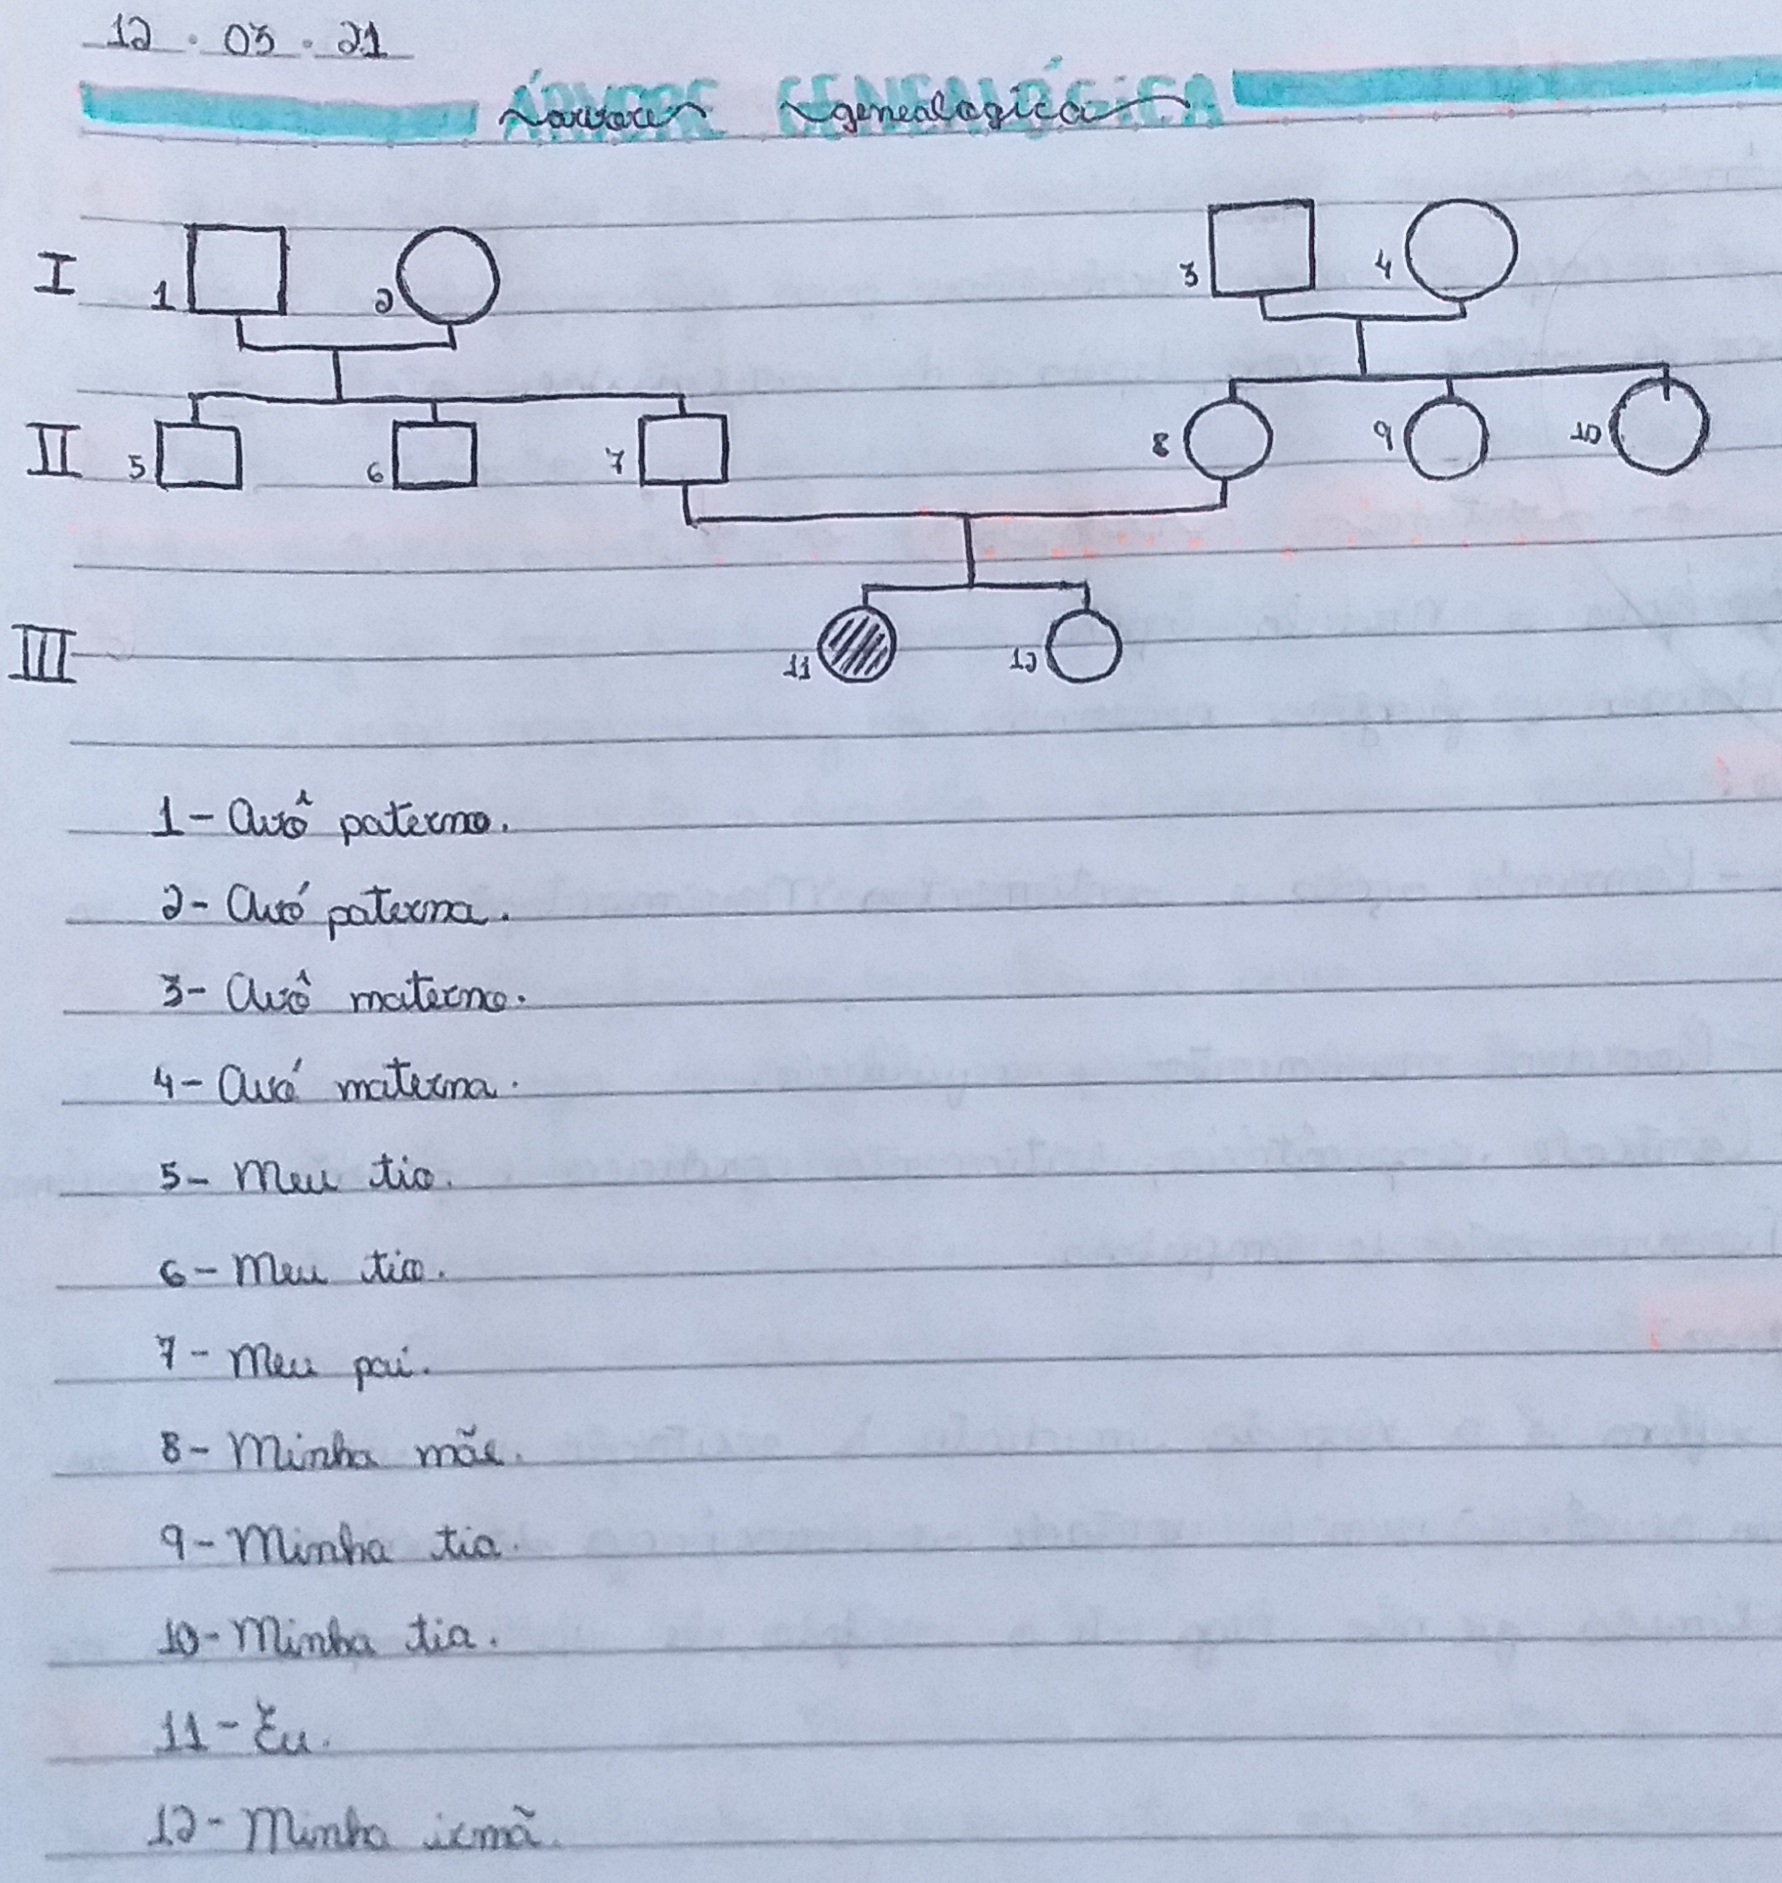 12.03.21
ÁRVORE GENEALÓGICA
árvore genealógica
I
1
2
3
4
II
5
6
7
8
9
10
III
11
12
1- Avô paterno.
2- Avó paterna.
3- Avô materno.
4- Avó materna.
5- Meu tio.
6- Meu tio.
7- Meu pai.
8- Minha mãe.
9- Minha tia.
10- Minha tia.
11- Eu.
12- Minha irmã.